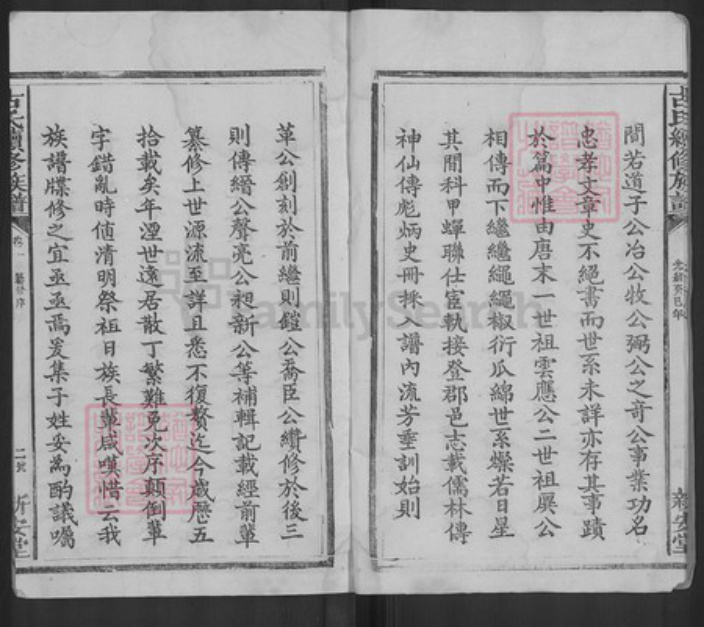 古氏續修族譜
光緒癸巳年
新安堂
間若道子公冶公牧公弼公之奇公事業功名
忠孝文章史不絕書而世系未詳亦存其事蹟
於篇中惟由唐末一世祖雲應公二世祖厤公
相傳而下繼繼繩繩椒衍瓜綿世系燦若日星
其間科甲蟬聯仕宦軌接登郡邑志載儒林傳
神仙傳彪炳史冊採入譜內流芳垂訓始則
革公創刻於前繼則鎧公喬臣公纘修於後三
則傳縉公聲亮公昶新公等補輯記載經前軰
纂修上世源流至詳且悉不復贅迄今歲歷五
拾載矣年湮世遠居散丁繁難免次序顛倒軰
字錯亂時值清明祭祖日族長軰咸嘆惜云我
族譜牒修之宜亟亟焉爰集子姓妥為酌議囑
古氏續修族譜
卷一
序
二
新安堂
FamilySearch